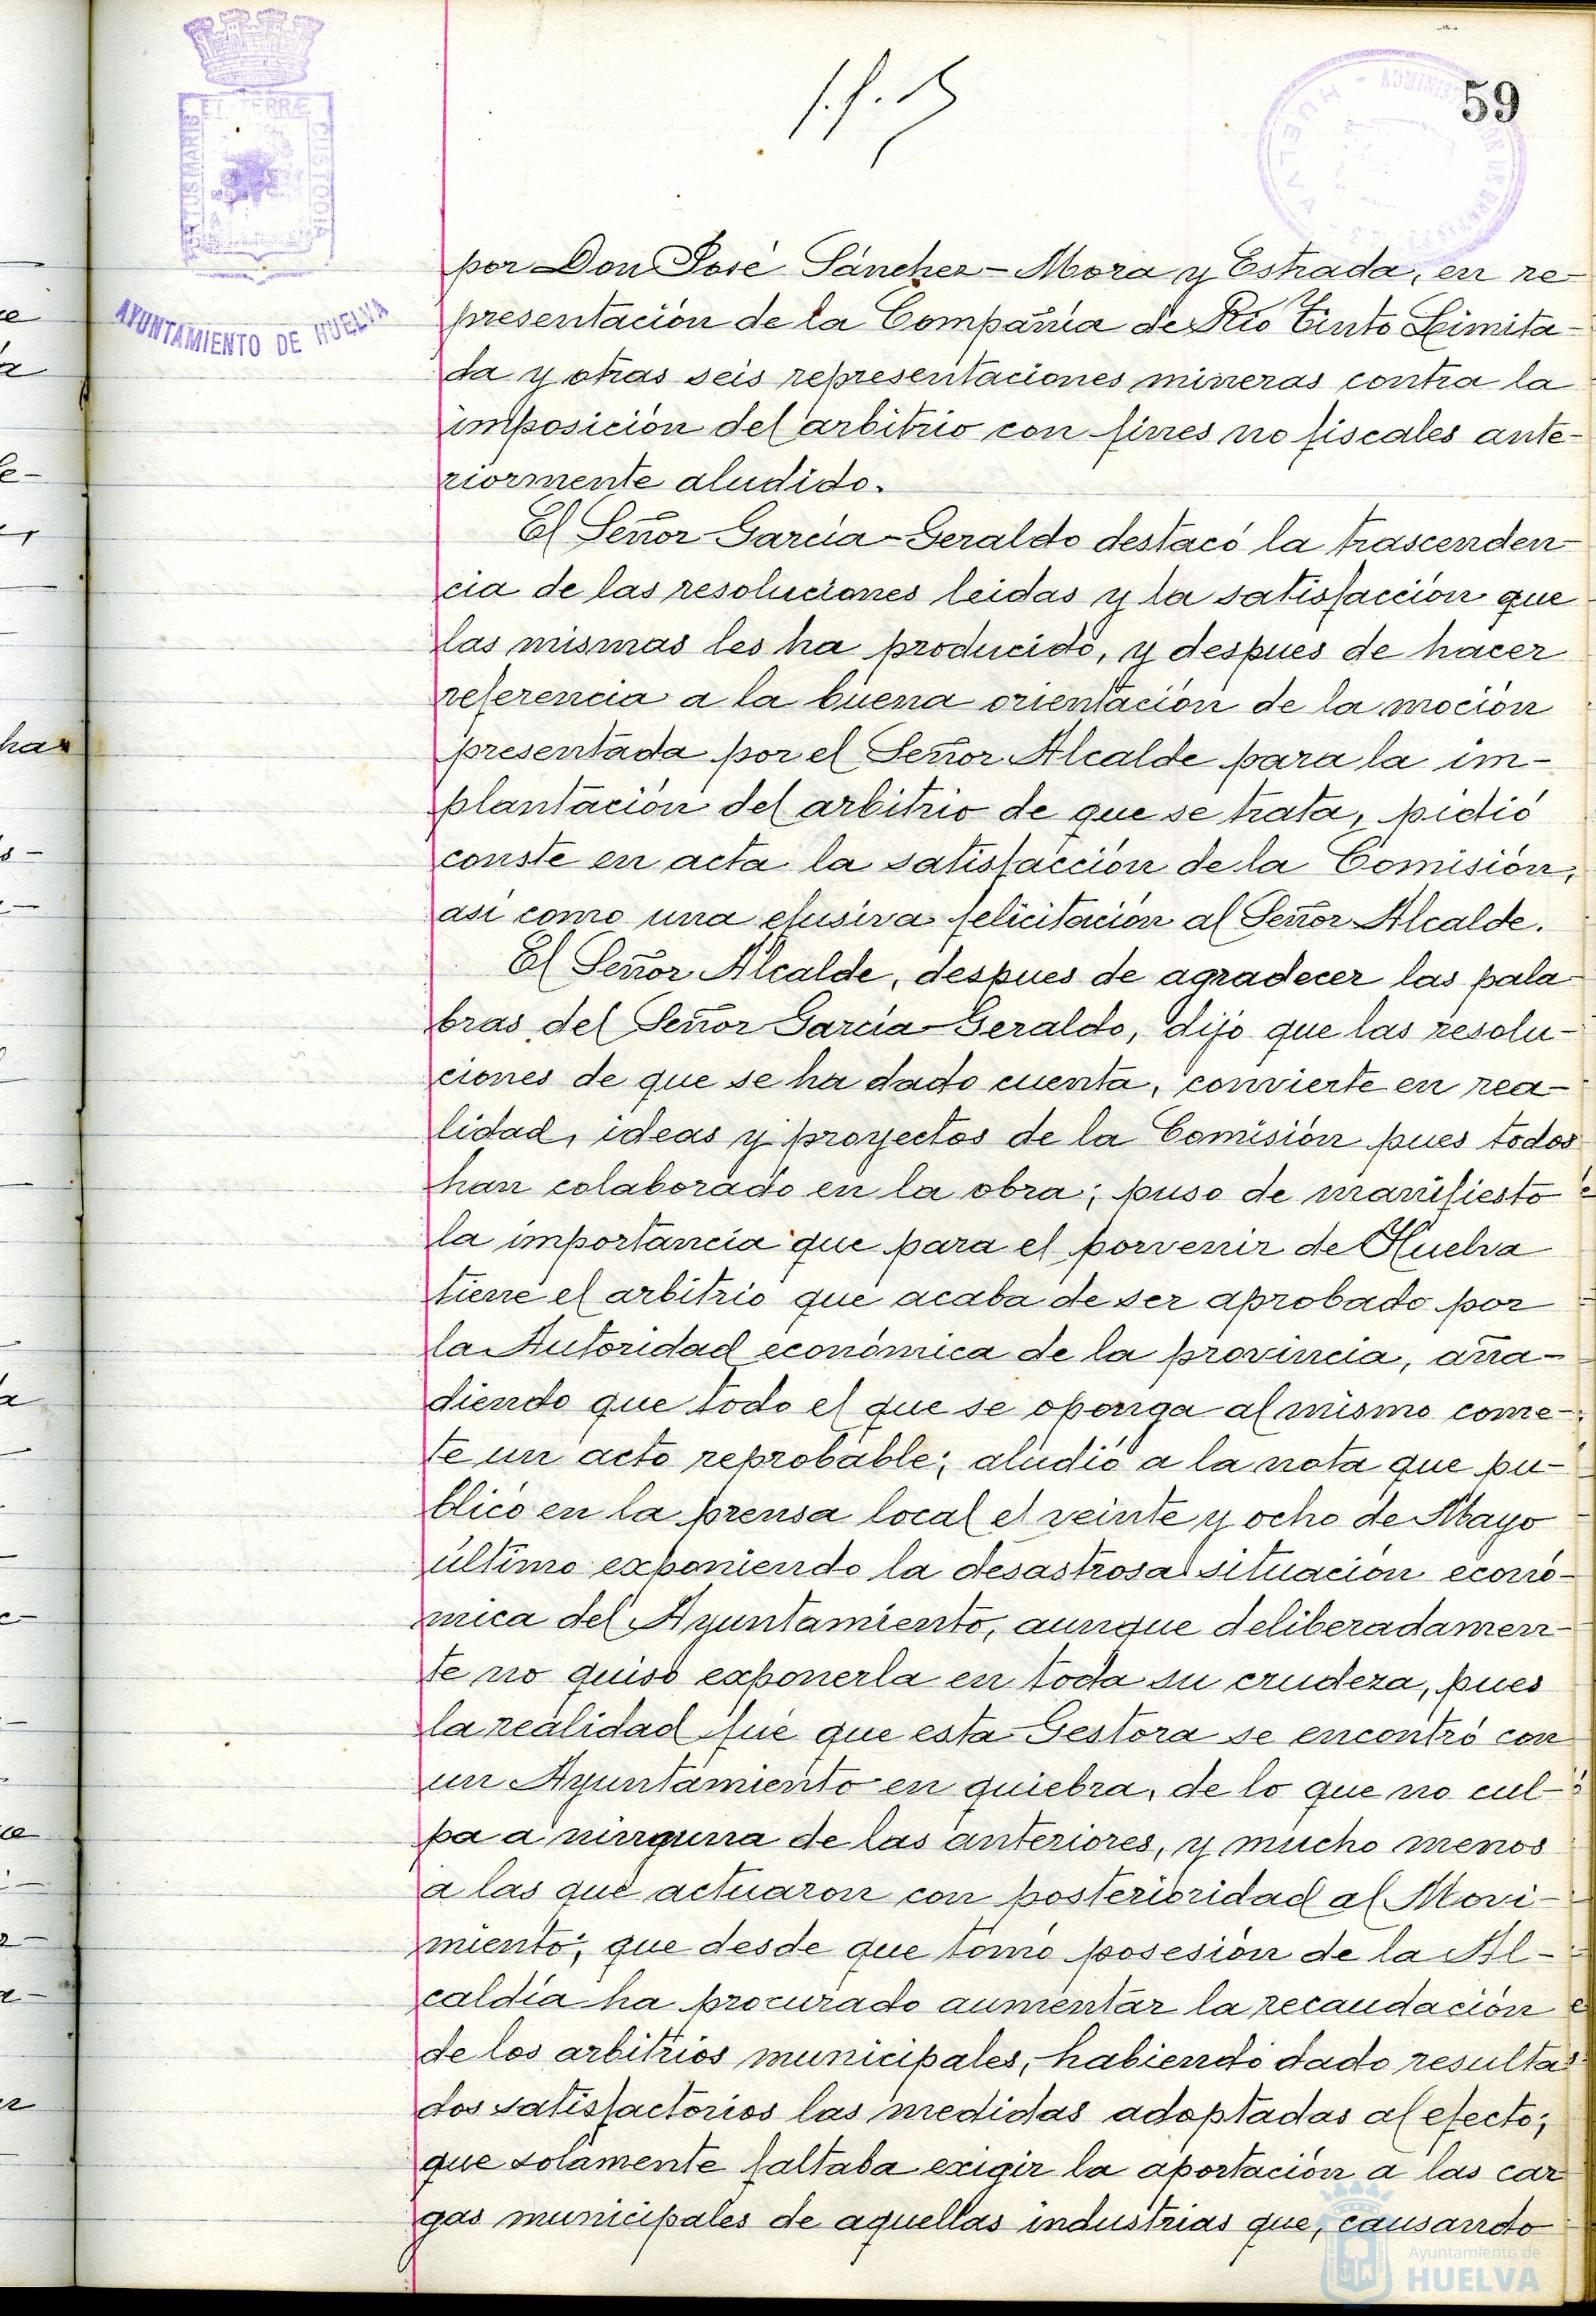 59
PORTUS MARIS ET TERRÆ CUSTODIA
AYUNTAMIENTO DE HUELVA
por Don José Sánchez-Mora y Estrada, en re-
presentación de la Compañía de Río Tinto Limita-
da y otras seis representaciones mineras contra la
imposición del arbitrio con fines no fiscales ante-
riormente aludido.
El Señor García-Geraldo destacó la trascenden-
cia de las resoluciones leidas y la satisfacción que
las mismas les ha producido, y despues de hacer
referencia a la buena orientación de la moción
presentada por el Señor Alcalde para la im-
plantación del arbitrio de que se trata, pidió
conste en acta la satisfacción de la Comisión,
asi como una efusiva felicitación al Señor Alcalde.
El Señor Alcalde, despues de agradecer las pala
bras del Señor García-Geraldo, dijo que las resolu-
ciones de que se ha dado cuenta, convierte en rea-
lidad, ideas y proyectos de la Comisión pues todos
han colaborado en la obra; puso de manifiesto
la importancia que para el porvenir de Huelva
tiene el arbitrio que acaba de ser aprobado por
la Autoridad económica de la provincia, aña-
diendo que todo el que se oponga al mismo come-
te un acto reprobable; aludió a la nota que pu-
blicó en la prensa local el veinte y ocho de Mayo
último exponiendo la desastrosa situación econó-
mica del Ayuntamiento, aunque deliberadamen-
te no quiso exponerla en toda su crudeza, pues
la realidad fué que esta Gestora se encontró con
un Ayuntamiento en quiebra, de lo que no cul-
pa a ninguna de las anteriores, y mucho menos
a las que actuaron con posterioridad al Movi-
miento; que desde que tomó posesión de la Al-
caldía ha procurado aumentar la recaudación
de los arbitrios municipales, habiendo dado resulta-
dos satisfactorios las medidas adoptadas al efecto;
que solamente faltaba exigir la aportación a las car
gas municipales de aquellas industrias que, causando
Ayuntamiento de
HUELVA